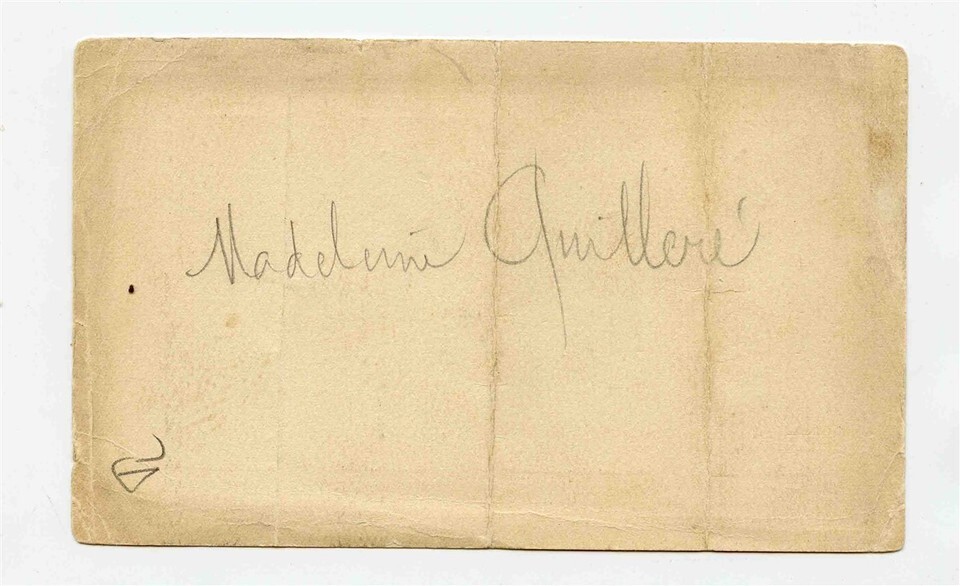 Madeleine Quilleré